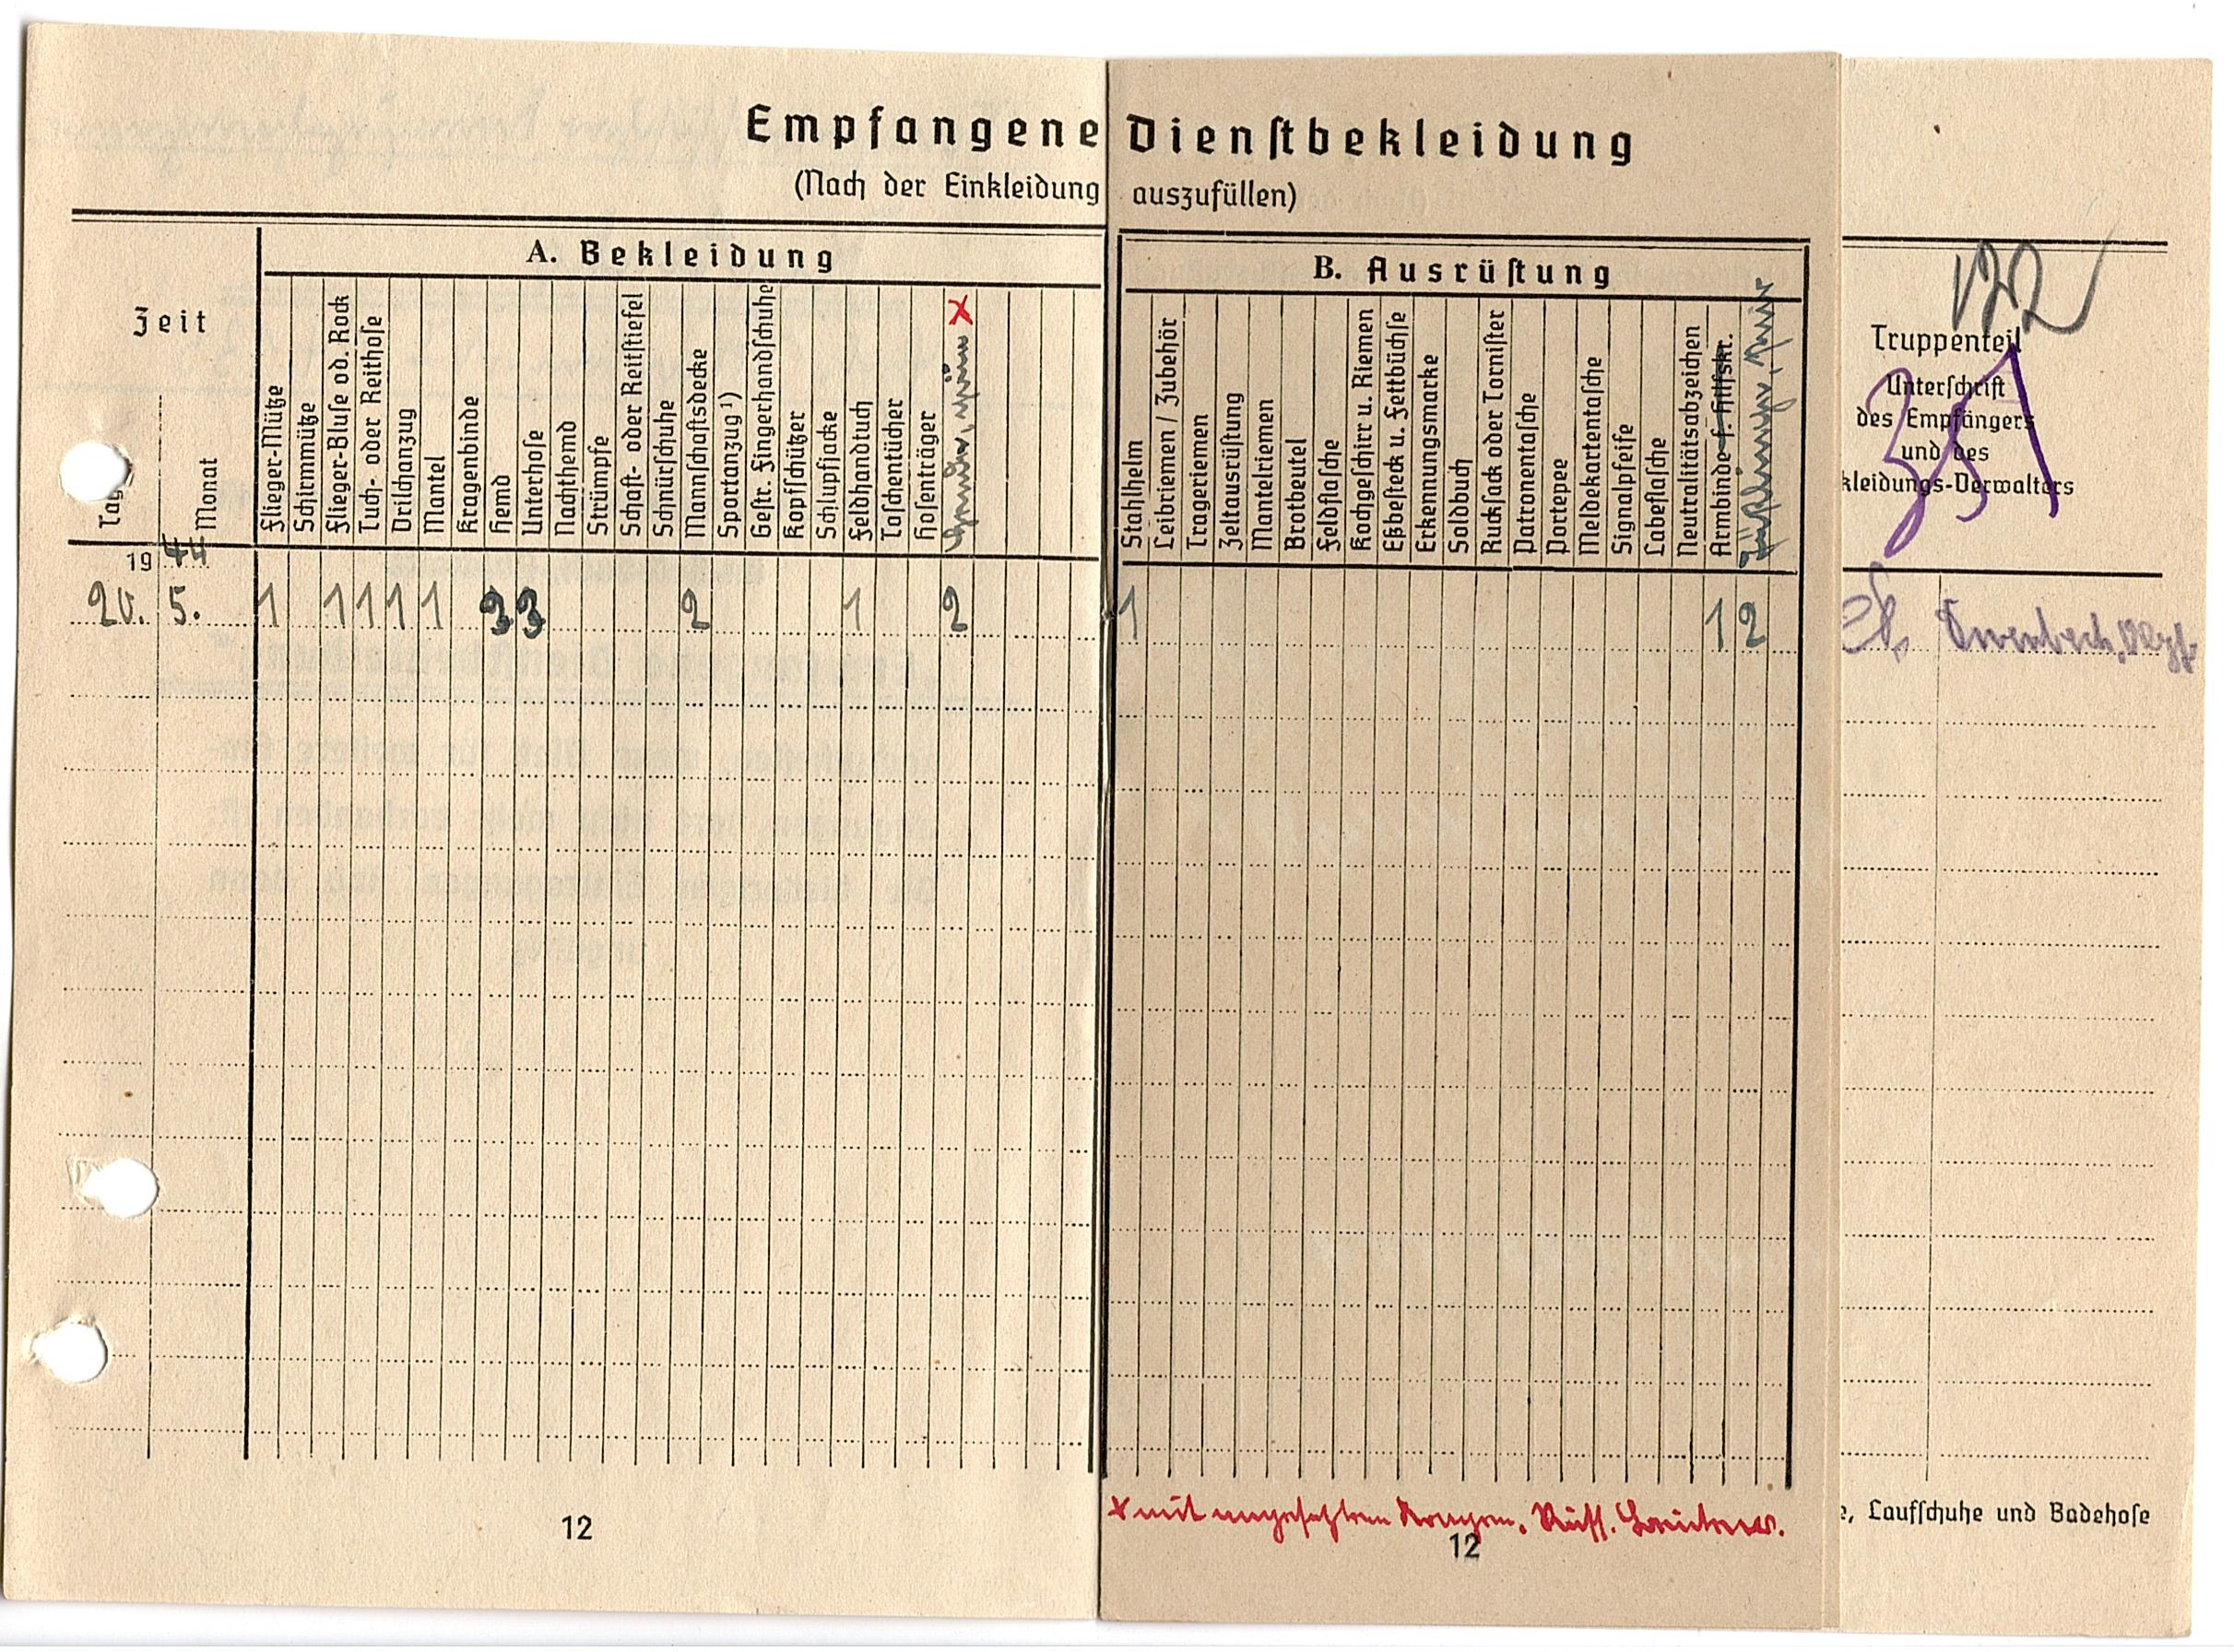 Empfangene Dienstbekleidung
(Nach der Einkleidung auszufüllen)
Zeit
Tag
Monat
A. Bekleidung
Flieger-Mütze
Schirmmütze
Flieger-Bluse od. Rock
Tuch- oder Reithose
Drilchanzug
Mantel
Kragenbinde
Hemd
Unterhose
Nachthemd
Strümpfe
Schaft- oder Reitstiefel
Schnürschuhe
Mannschaftsdecke
Sportanzug ¹)
Gestr. Fingerhandschuhe
Kopfschützer
Schlupfjacke
Feldhandtuch
Taschentücher
Hosenträger
Hemden, grün x
B. Ausrüstung
Stahlhelm
Leibriemen / Zubehör
Trageriemen
Zeltausrüstung
Mantelriemen
Brotbeutel
Feldflasche
Kochgeschirr u. Riemen
Eßbesteck u. Fettbüchse
Erkennungsmarke
Soldbuch
Rucksack oder Tornister
Patronentasche
Portepee
Meldekartentasche
Signalpfeife
Labeflasche
Neutralitätsabzeichen
Armbinde f. Hilfskr.
122
Truppenteil
Unterschrift
des Empfängers
und des
kleidungs-Verwalters
1944
20. 5. 1 1 1 1 1 3 3 2 1 2 1 1 2
x mit angesetztem Kragen.
e, Laufschuhe und Badehose
12
12